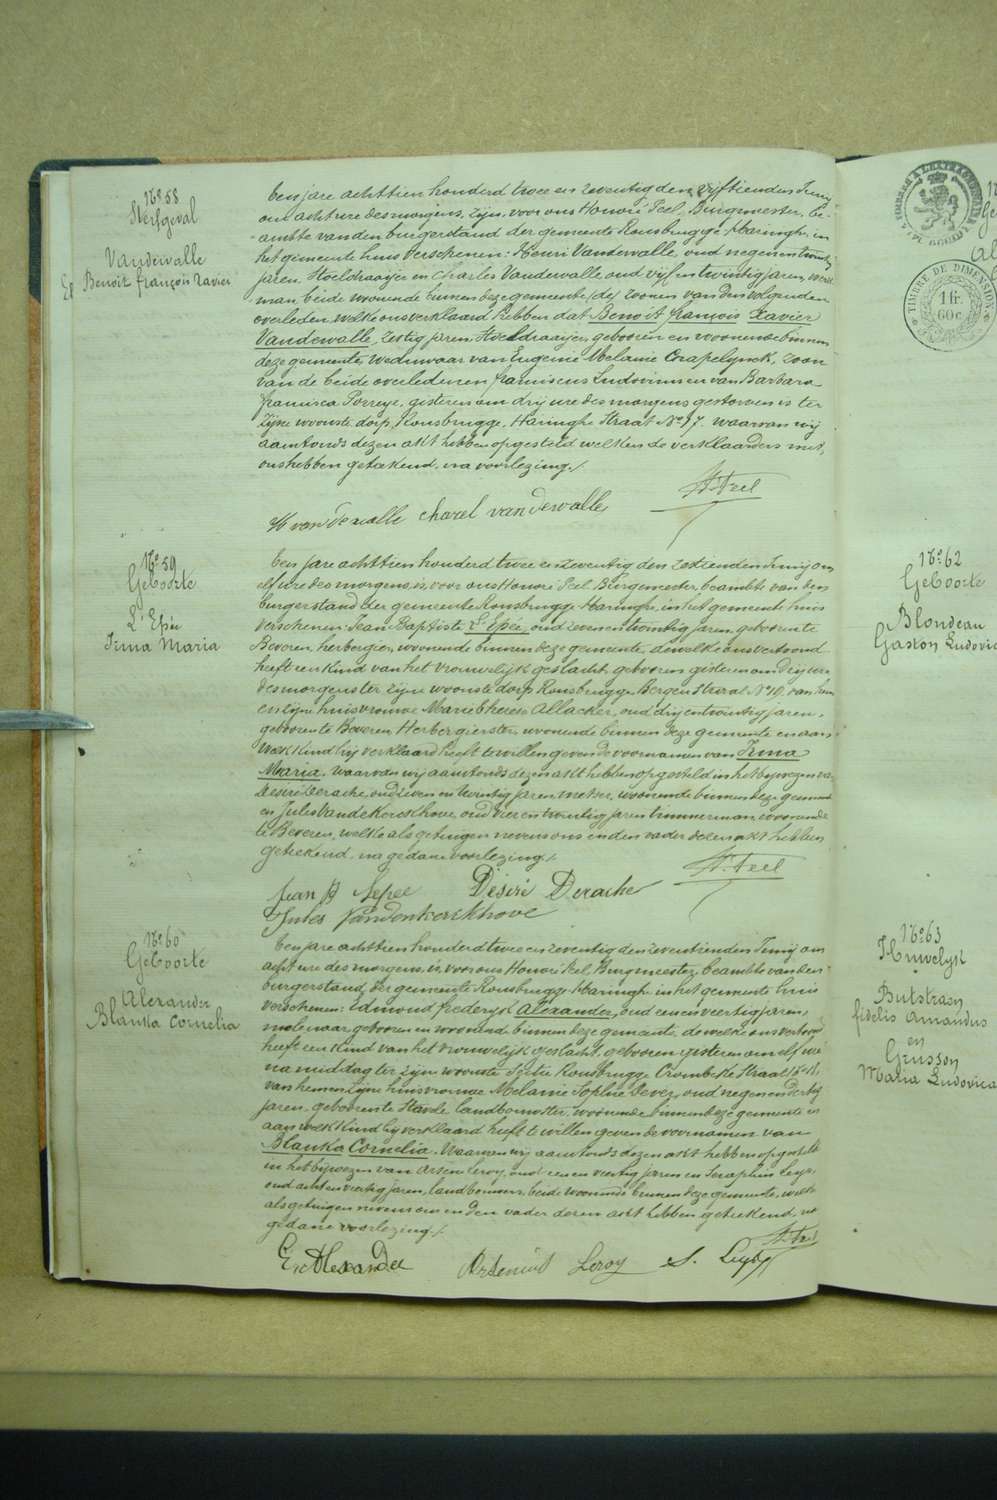 N° 58
Sterfgeval
Vandewalle
Benoit françois Xavier
Een jare achttien honderd twee en zeventig den vijftienden Junij
om acht ure des morgens, zijn, voor ons Honoré Peel, Burgmeester, be-
ambte van den burgerstand der gemeente Rousbrugge-Haringhe, in
het gemeente huis verschenen: Henri Vandewalle, oud negenentwintig
jaren, stoeldraaijer en Charles Vandewalle oud vijfentwintig jaren,
man beide woonende binnen deze gemeente (de) zoonen van den volgenden
overleden, welke ons verklaard hebben dat Benoit françois Xavier
Vandewalle, zestig jaren, stoeldraaijer, gebooren en woonende binnen
deze gemeente, weduwaar van Eugenie Melanie Crapelynck, zoon
van de beide overledenen franciscus Ludovicus en van Barbara
francisca Porreye, gisteren om drij ure des morgens gestorven is ter
zijne woonste, dorp, Rousbrugge, Haringhe Straat N° 17. waarvan wij
aanstonds dezen akt hebben opgesteld welken de verklaarders met
ons hebben geteekend, na voorlezing./.
H. Peel
H vandewalle charel vandewalle
N° 59
Geboorte
L'Epée
Irma Maria
Een jare achttien honderd twee en zeventig den zestienden Junij om
elf ure des morgens, is, voor ons Honoré Peel Burgemeester, beambte van den
burgerstand der gemeente Rousbrugge Haringhe, in het gemeente huis
verschenen: Jean Baptiste L'Epée, oud zevenentwintig jaren, geboren te
Beveren, herbergier, woonende binnen deze gemeente, dewelke ons vertoond
heeft een kind van het vrouwelijk geslacht, geboren gisteren om drij ure
des morgens ter zijne woonste dorp Rousbrugge Bergen Straat N° 10, van hem
en zijne huisvrouwe Marie Therese Allacker, oud drijentwintig jaren,
geboren te Beveren Herbergierster, woonende binnen deze gemeente en aan
welk kind hij verklaard heeft te willen geven de voornamen van Irma
Maria. Waarvan wij aanstonds dezen akt hebben opgesteld in het bijwezen van
Desiré Derache, oud zeven en twintig jaren metser, woonende binnen deze gemeente
en Jules Vandekerckhove, oud vier en twintig jaren timmerman, woonende
te Beveren, welke als getuigen nevens ons en den vader dezen akt hebben
geteekend, na gedane voorlezing./.
H. Peel
Jean B Lepee Désiré Derache
Jules Vandenkerckhove
N° 60
Geboorte
Alexander
Blanka Cornelia
Een jare achttien honderd twee en zeventig den zeventienden Junij om
acht ure des morgens, is, voor ons Honoré Peel, Burgmeester, beambte van den
burgerstand der gemeente Rousbrugge-Haringhe in het gemeente huis
verschenen: Edmond frederyk Alexander, oud eenenveertig jaren,
molenaar, gebooren en woonende binnen deze gemeente, dewelke ons vertoond
heeft een kind van het vrouwelijk geslacht, gebooren gisteren om elf ure
na middag ter zijne woonste Sectie Rousbrugge Crombeke Straat N° 18,
van hem en zijne huisvrouwe Melanie Sophie Devey, oud negenendertig
jaren, geboren te Stavele landbouwster, woonende binnen deze gemeente en
aan welk kind hij verklaard heeft te willen geven de voornamen van
Blanka Cornelia. Waarvan wij aanstonds dezen akt hebben opgesteld
in het bijwezen van Arsene Leroy, oud een en veertig jaren en Seraphin Leys,
oud acht en veertig jaren, landbouwers, beide woonende binnen deze gemeente, welke
als getuigen nevens ons en den vader dezen akt hebben geteekend, na
gedane voorlezing./.
H. Peel
E. Alexander Arsenius Leroy S. Leys
TIMBRE DE DIMENSION
1 fr.
60 c
N° 62
Geboorte
Blondeau
Gaston Ludovic
N° 63
Huwelijk
Butstraen
fidelis Amandus
en
Grusson
Maria Ludovica